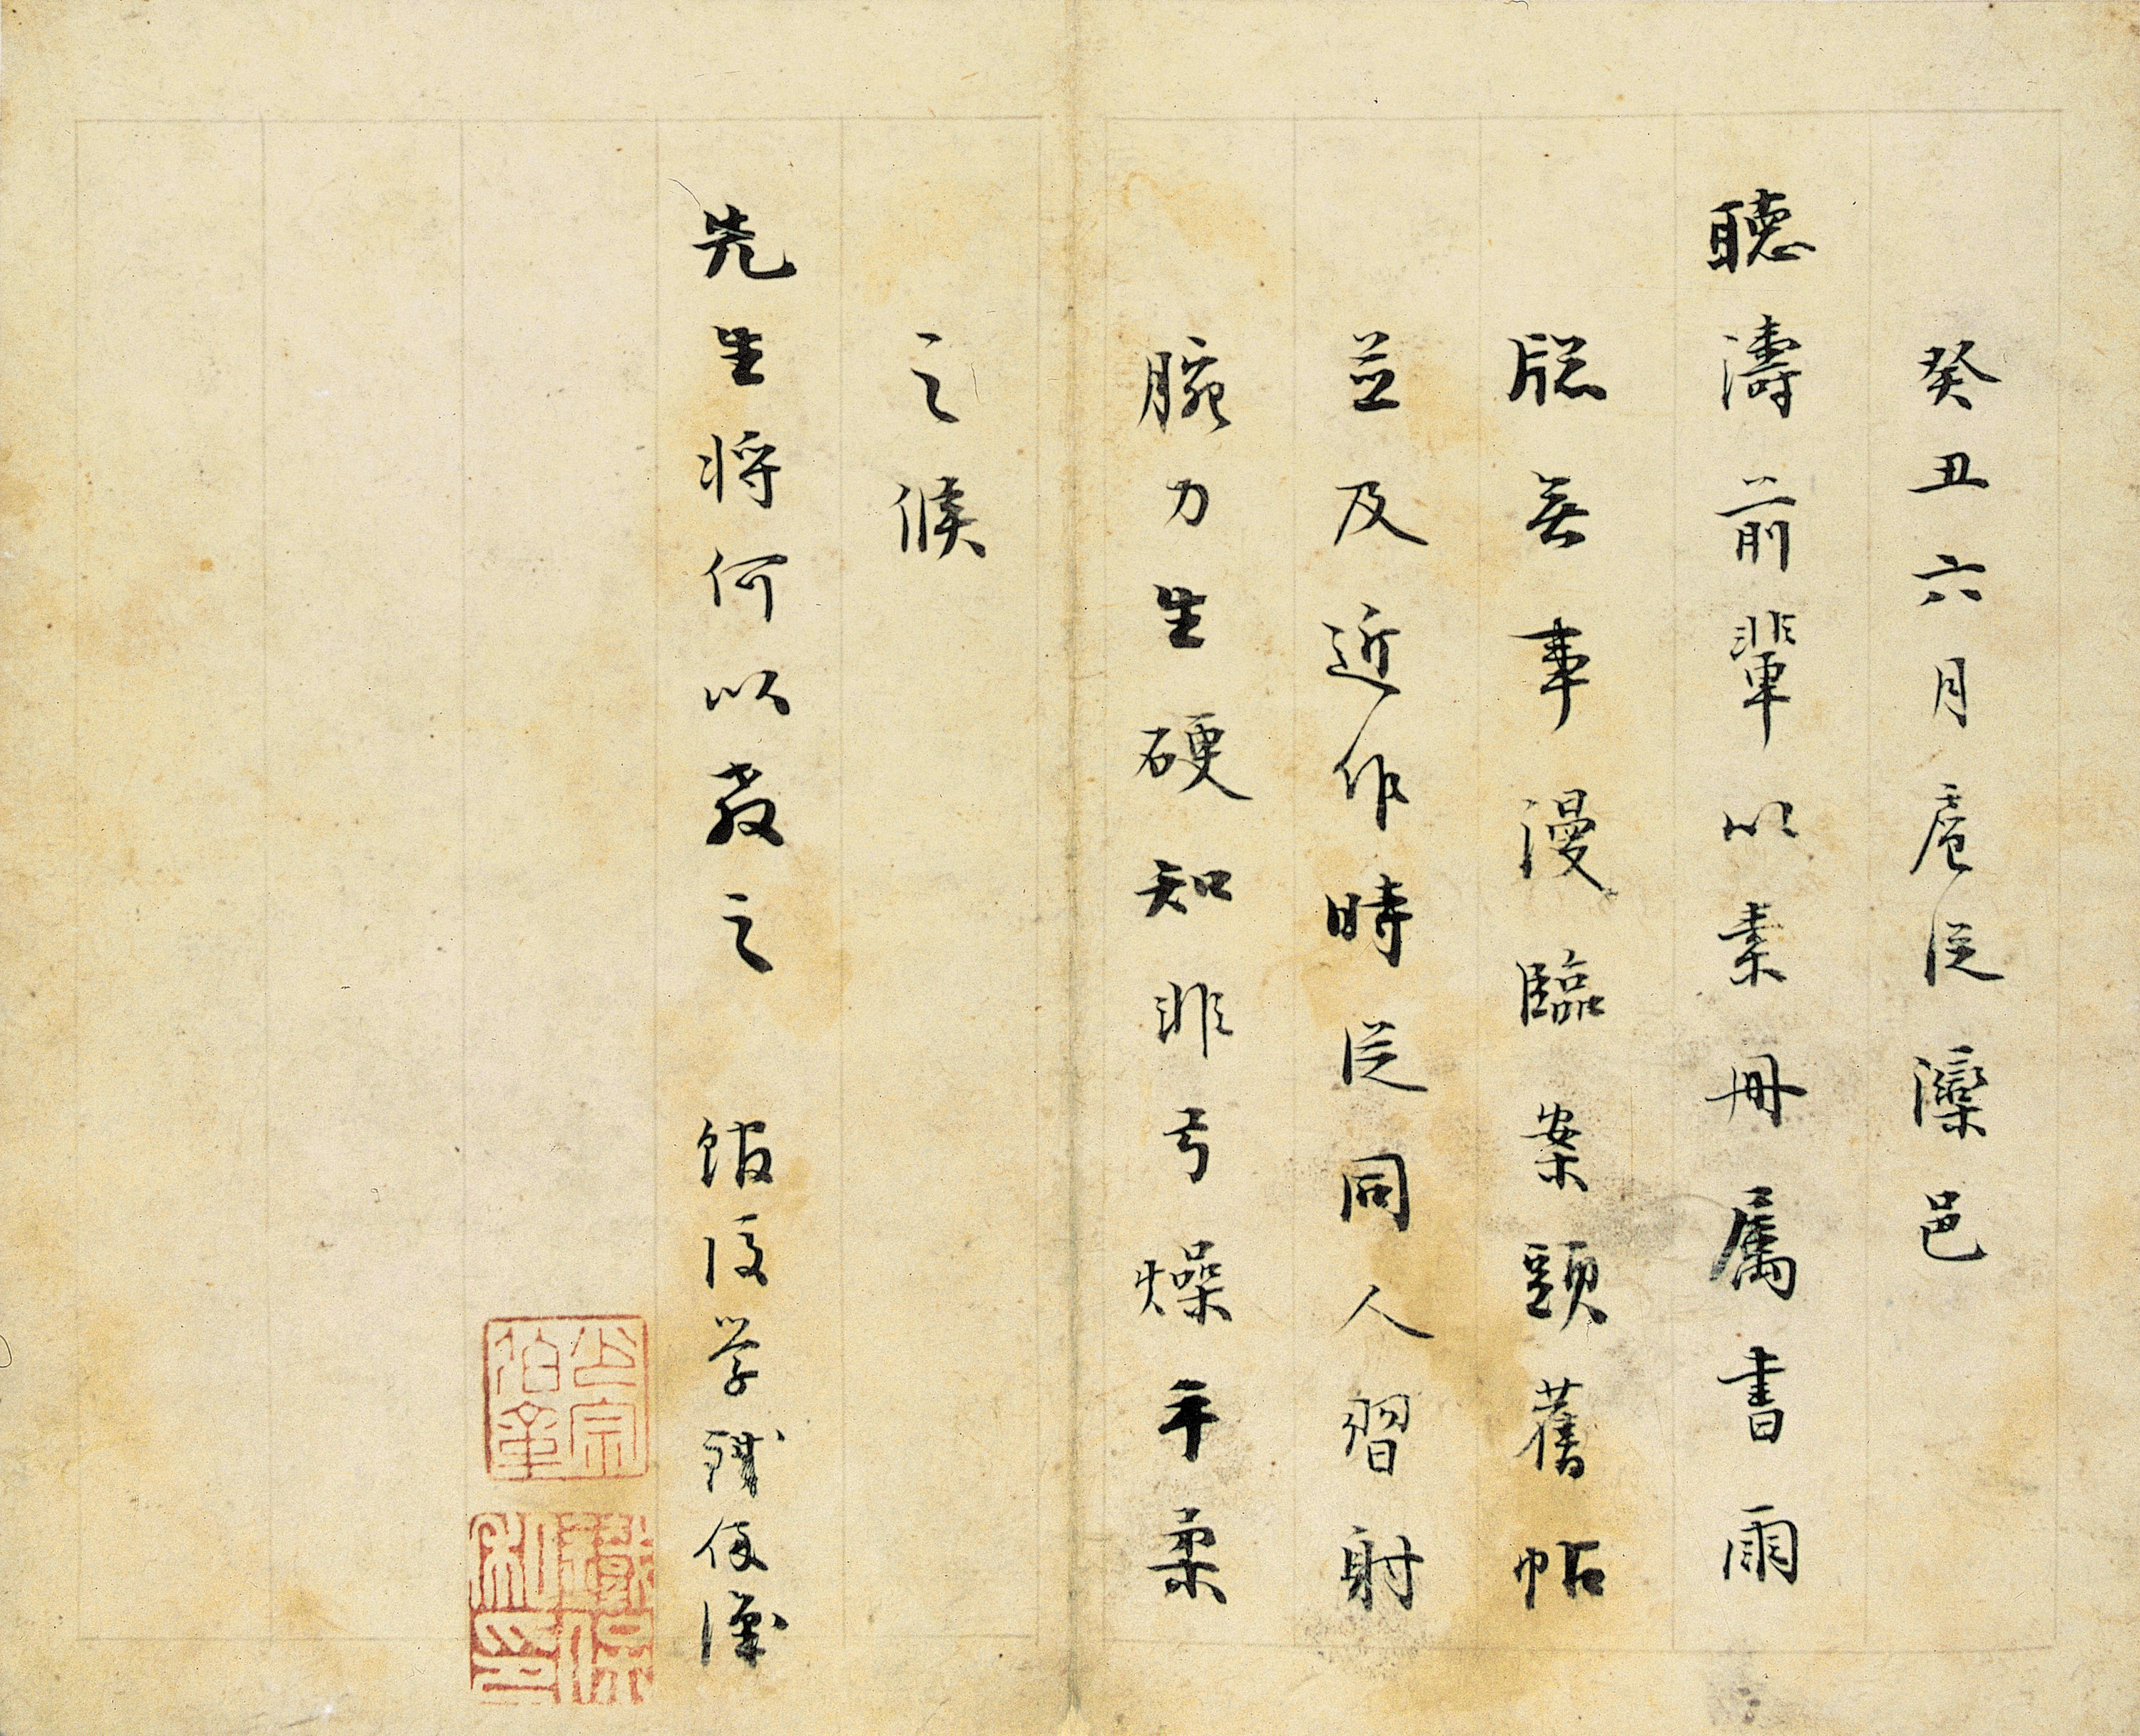 癸丑六月扈從灤邑
聽濤前輩以素冊属書雨
牕無事漫臨案頭舊帖
並及近作時從同人習射
腕力生硬知非弓燥手柔
之候
先生将何以教之 館後学鐵保謹
鐵保私印